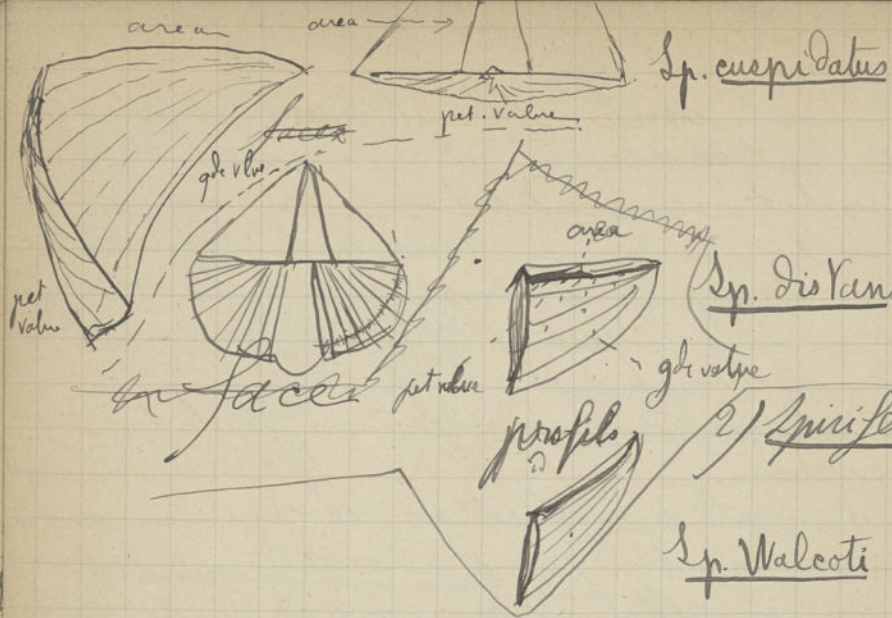 area
area
Sp. cuspidatus
pet. valve
face
gde vlve
area
Sp. distans
pet valve
pet valve
gde valve
face
profils
2) Spirife
Sp. Walcoti